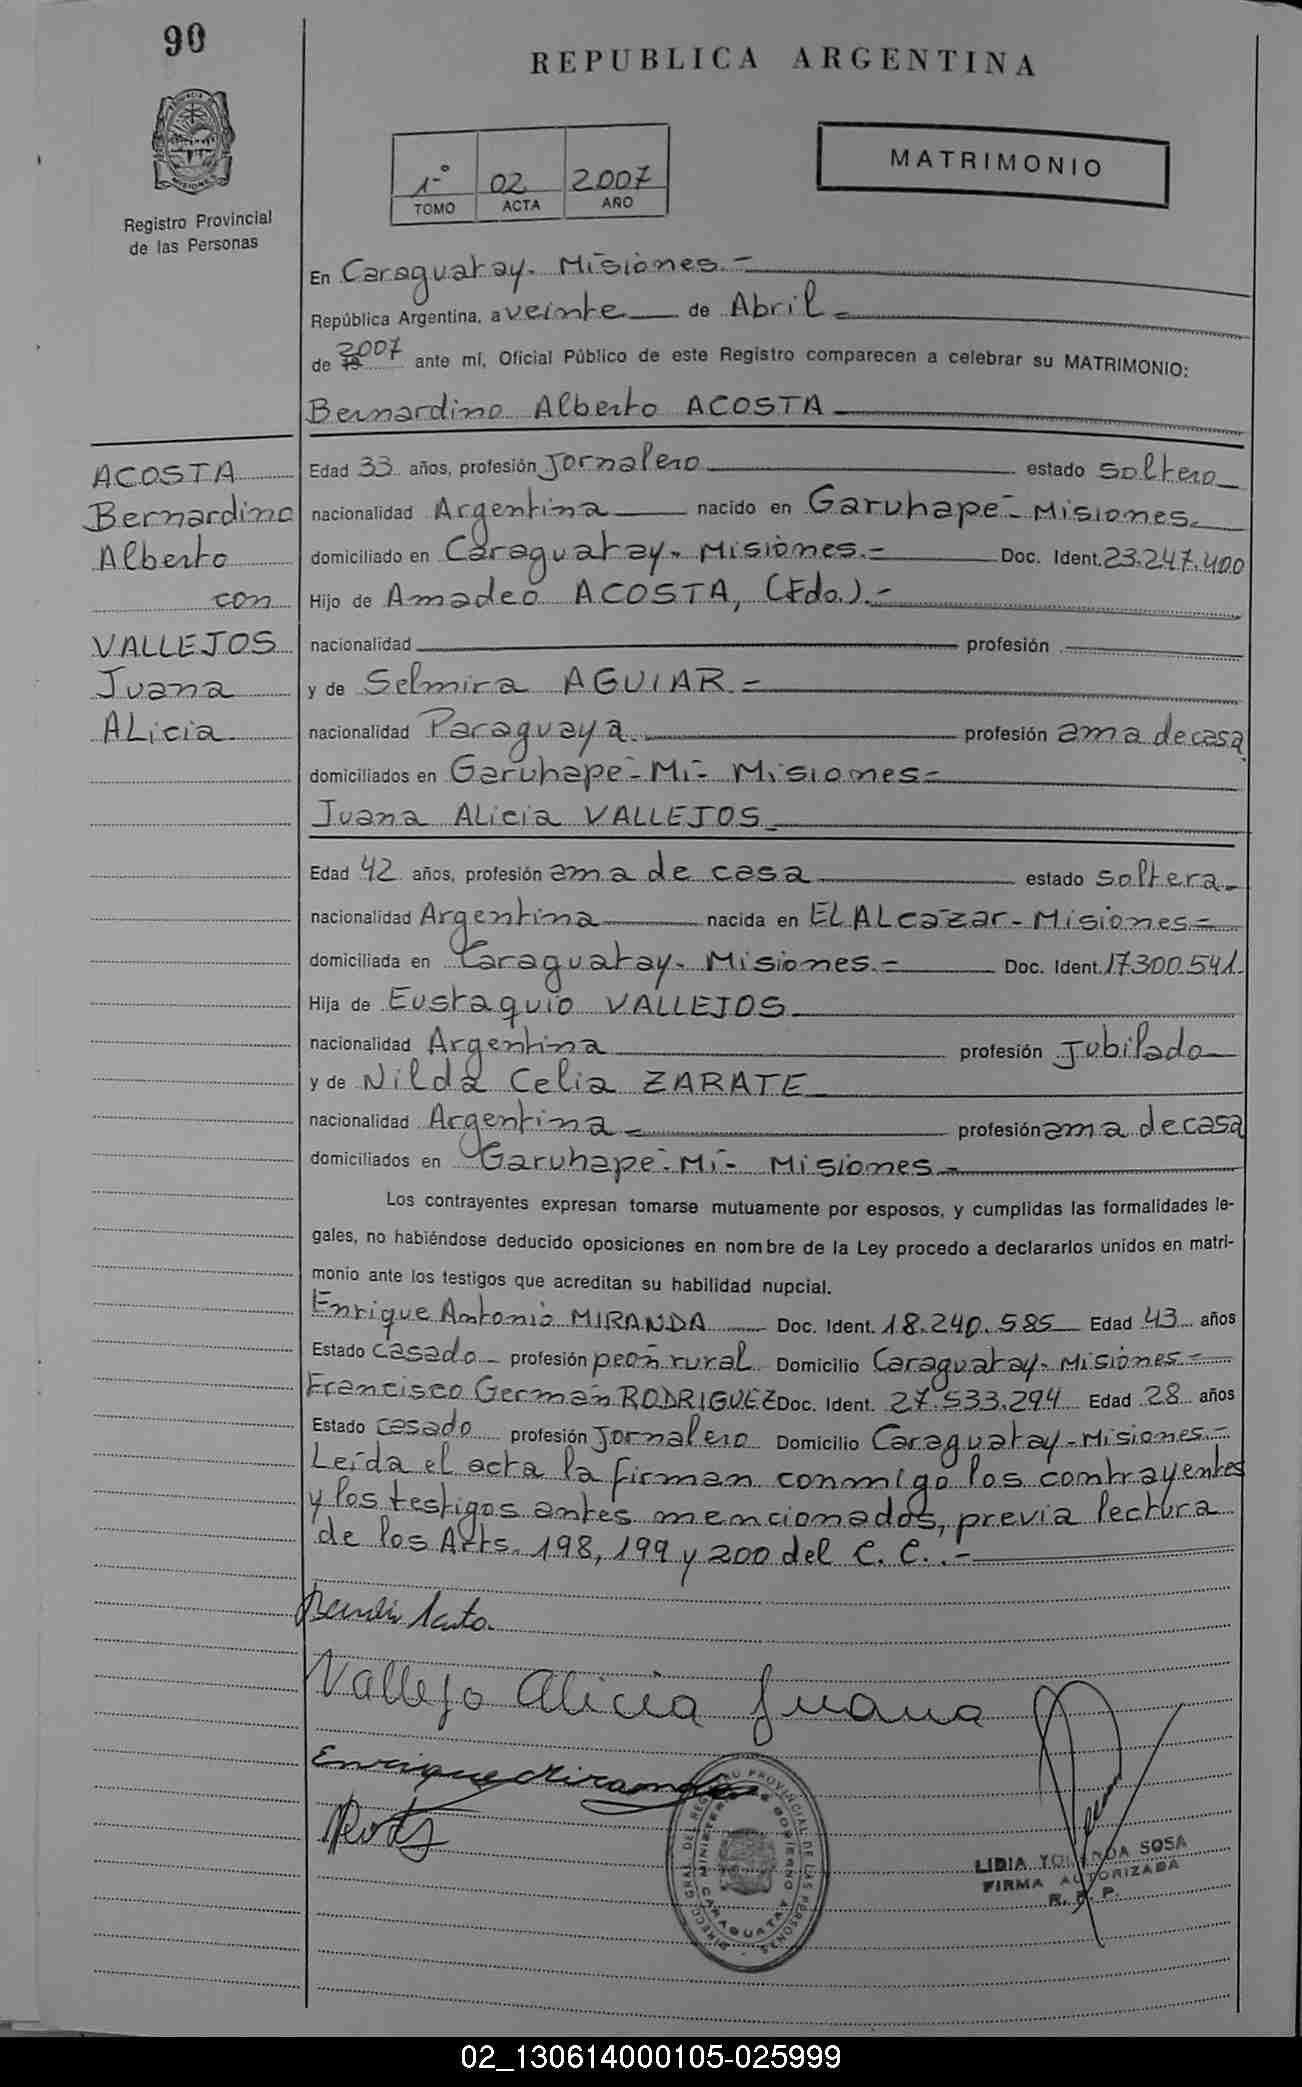 90
REPUBLICA ARGENTINA
MATRIMONIO
1º 02 2007
TOMO ACTA AÑO
Registro Provincial
de las Personas
En Caraguatay. Misiones.=
República Argentina, a veinte de Abril=
de 19 2007 ante mí, Oficial Público de este Registro comparecen a celebrar su MATRIMONIO:
Bernardino Alberto ACOSTA
ACOSTA
Bernardino
Alberto
con
VALLEJOS
Juana
ALicia
Edad 33 años, profesión Jornalero estado soltero
nacionalidad Argentina nacido en Garuhape- Misiones.
domiciliado en Caraguatay. Misiones.= Doc. Ident. 23.247.400
Hijo de Amadeo ACOSTA, (Fdo.).=
nacionalidad profesión
y de Selmira AGUIAR.=
nacionalidad Paraguaya. profesión ama de casa
domiciliados en Garuhape-Mi- Misiones=
Juana ALicia VALLEJOS
Edad 42 años, profesión ama de casa estado soltera
nacionalidad Argentina nacida en EL ALcazar- Misiones=
domiciliada en Caraguatay. Misiones.= Doc. Ident. 17300.541.
Hija de Eustaquio VALLEJOS
nacionalidad Argentina profesión Jubilado
y de Nilda Celia ZARATE
nacionalidad Argentina profesión ama de casa
domiciliados en Garuhape-Mi- Misiones
Los contrayentes expresan tomarse mutuamente por esposos, y cumplidas las formalidades le-
gales, no habiéndose deducido oposiciones en nombre de la Ley procedo a declararlos unidos en matri-
monio ante los testigos que acreditan su habilidad nupcial.
Enrique Antonio MIRANDA Doc. Ident. 18.240.585 Edad 43 años
Estado casado profesión peón rural Domicilio Caraguatay. Misiones=
Francisco Germán RODRIGUEZ Doc. Ident. 27.533.294 Edad 28 años
Estado casado profesión Jornalero Domicilio Caraguatay-Misiones.=
Leída el acta la firman conmigo los contrayentes
y los testigos antes mencionados, previa lectura
de los Arts. 198, 199 y 200 del C. C..-
Vallejo Alicia Juana
Enrique Miranda
DIRECC. GRAL. DEL REGISTRO PROVINCIAL DE LAS PERSONAS
MINISTERIO DE GOBIERNO
CARAGUATAY
LIDIA YOLANDA SOSA
FIRMA AUTORIZADA
R. P. P.
02_130614000105-025999